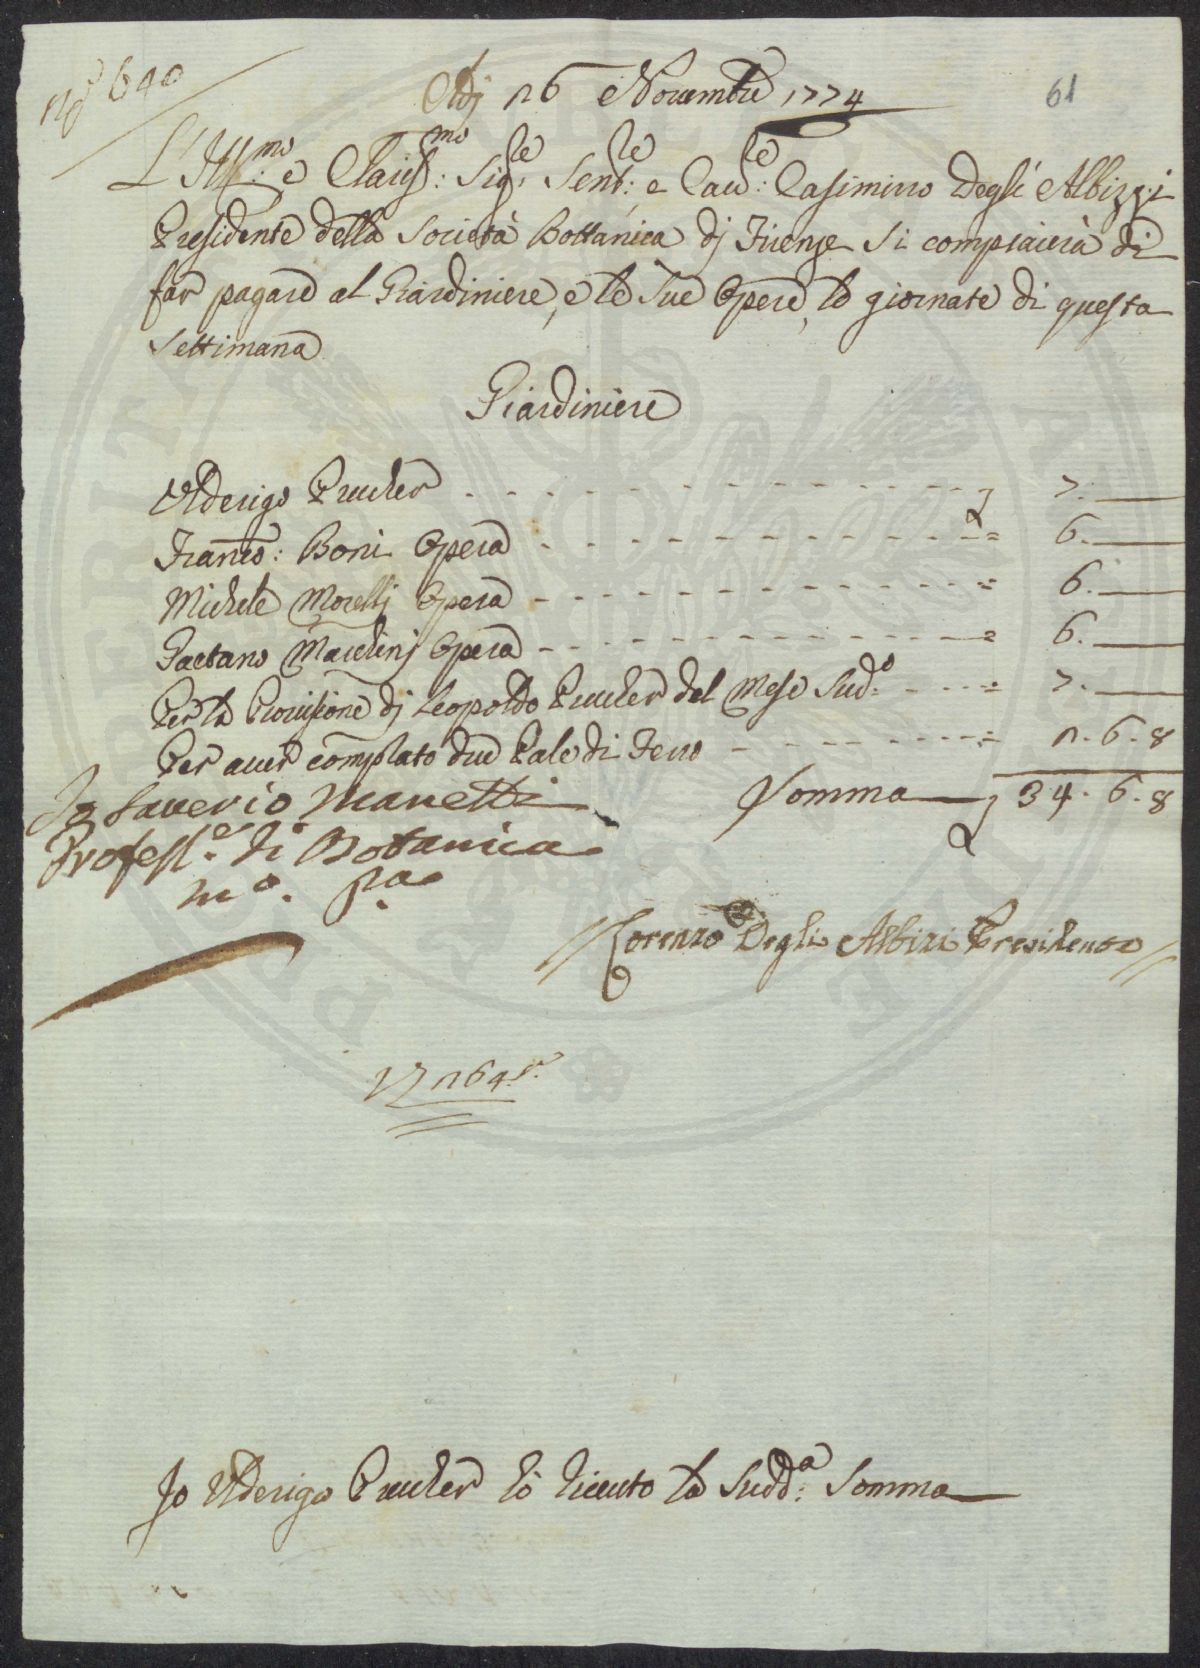 N.º 640
Adj 26 Novembre 1774
61
L'Ill:mo e Claris:mo Sig:re Sen:re e Cav:re Casimirro Degli Albizzi
Presidente della Società Bottanica dj Firenze Si compiaierà di
far pagare al Giardiniere, e le Sue Opere, le giornate di questa
Settimana
Giardiniere
Ulderigo Prucher 7.
Franco: Boni Opera = 6.
Michele Morellj Opera = 6.
Gaetano Marchinj Opera = 6.
Per la Provisione dj Leopoldo Prucher del Mese Sud:o = 7.
Per aver complato due Pale di Ferro = 2. 6. 8
Somma 34. 6. 8
Io Saverio Manetti
Profess.e di Botanica
m.o p.a
Lorenzo Degli Albizi Presidente
264
Io Ulderigo Prucher hò riceuto la Sudd:a Somma